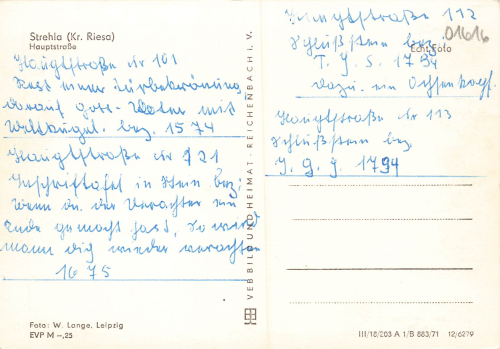 Strehla (Kr. Riesa)
Hauptstraße
Hauptstraße Nr 101
Rest einer Türbekrönung
darauf Gott-Vater mit
Weltkugel. bez. 1574
Hauptstraße Nr 21
Inschrifttafel in Stein bez:
Wenn du der Verachter ein
Ende gemacht hast, so wird
mann dig wieder verachten
1675
Foto: W. Lange, Leipzig
EVP M –,25
VEB BILD UND HEIMAT · REICHENBACH i. V.
Hauptstraße 112
01616
Echt Foto
Schlußstein bez.
T. J. S. 1794
dazu ein Ochsenkopf.
Hauptstraße Nr 113
Schlußstein bez
J. G. J. 1794
III/18/203 A 1/B 883/71 12/6279